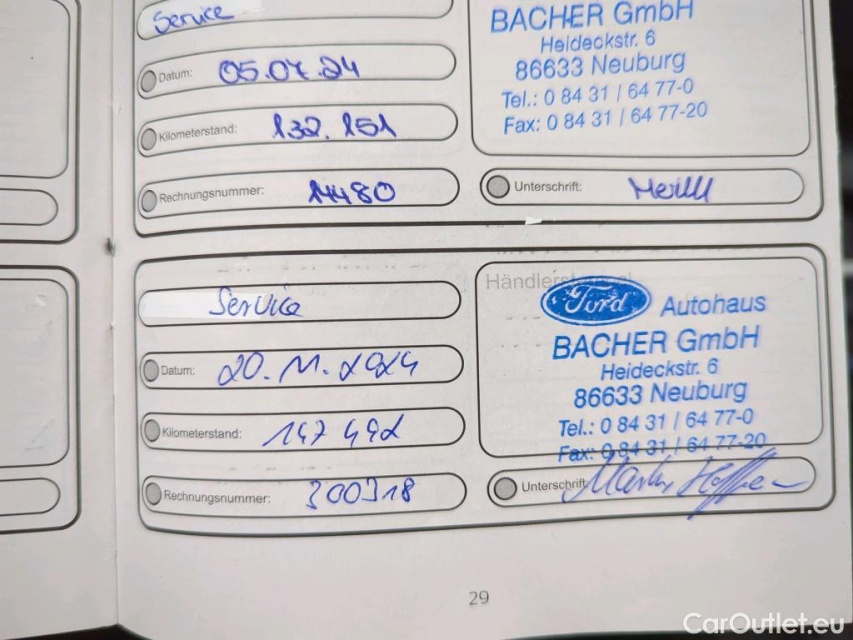 Service
BACHER GmbH
Heideckstr. 6
86633 Neuburg
Tel.: 0 84 31 / 64 77-0
Fax: 0 84 31 / 64 77-20
Datum: 05.07.24
Kilometerstand: 132.151
Rechnungsnummer: 14480
Unterschrift:
Service
Händlerstempel
Ford Autohaus
BACHER GmbH
Heideckstr. 6
86633 Neuburg
Tel.: 0 84 31 / 64 77-0
Fax: 0 84 31 / 64 77-20
Datum: 20.11.2024
Kilometerstand: 147 492
Rechnungsnummer: 300318
Unterschrift:
29
CarOutlet.eu